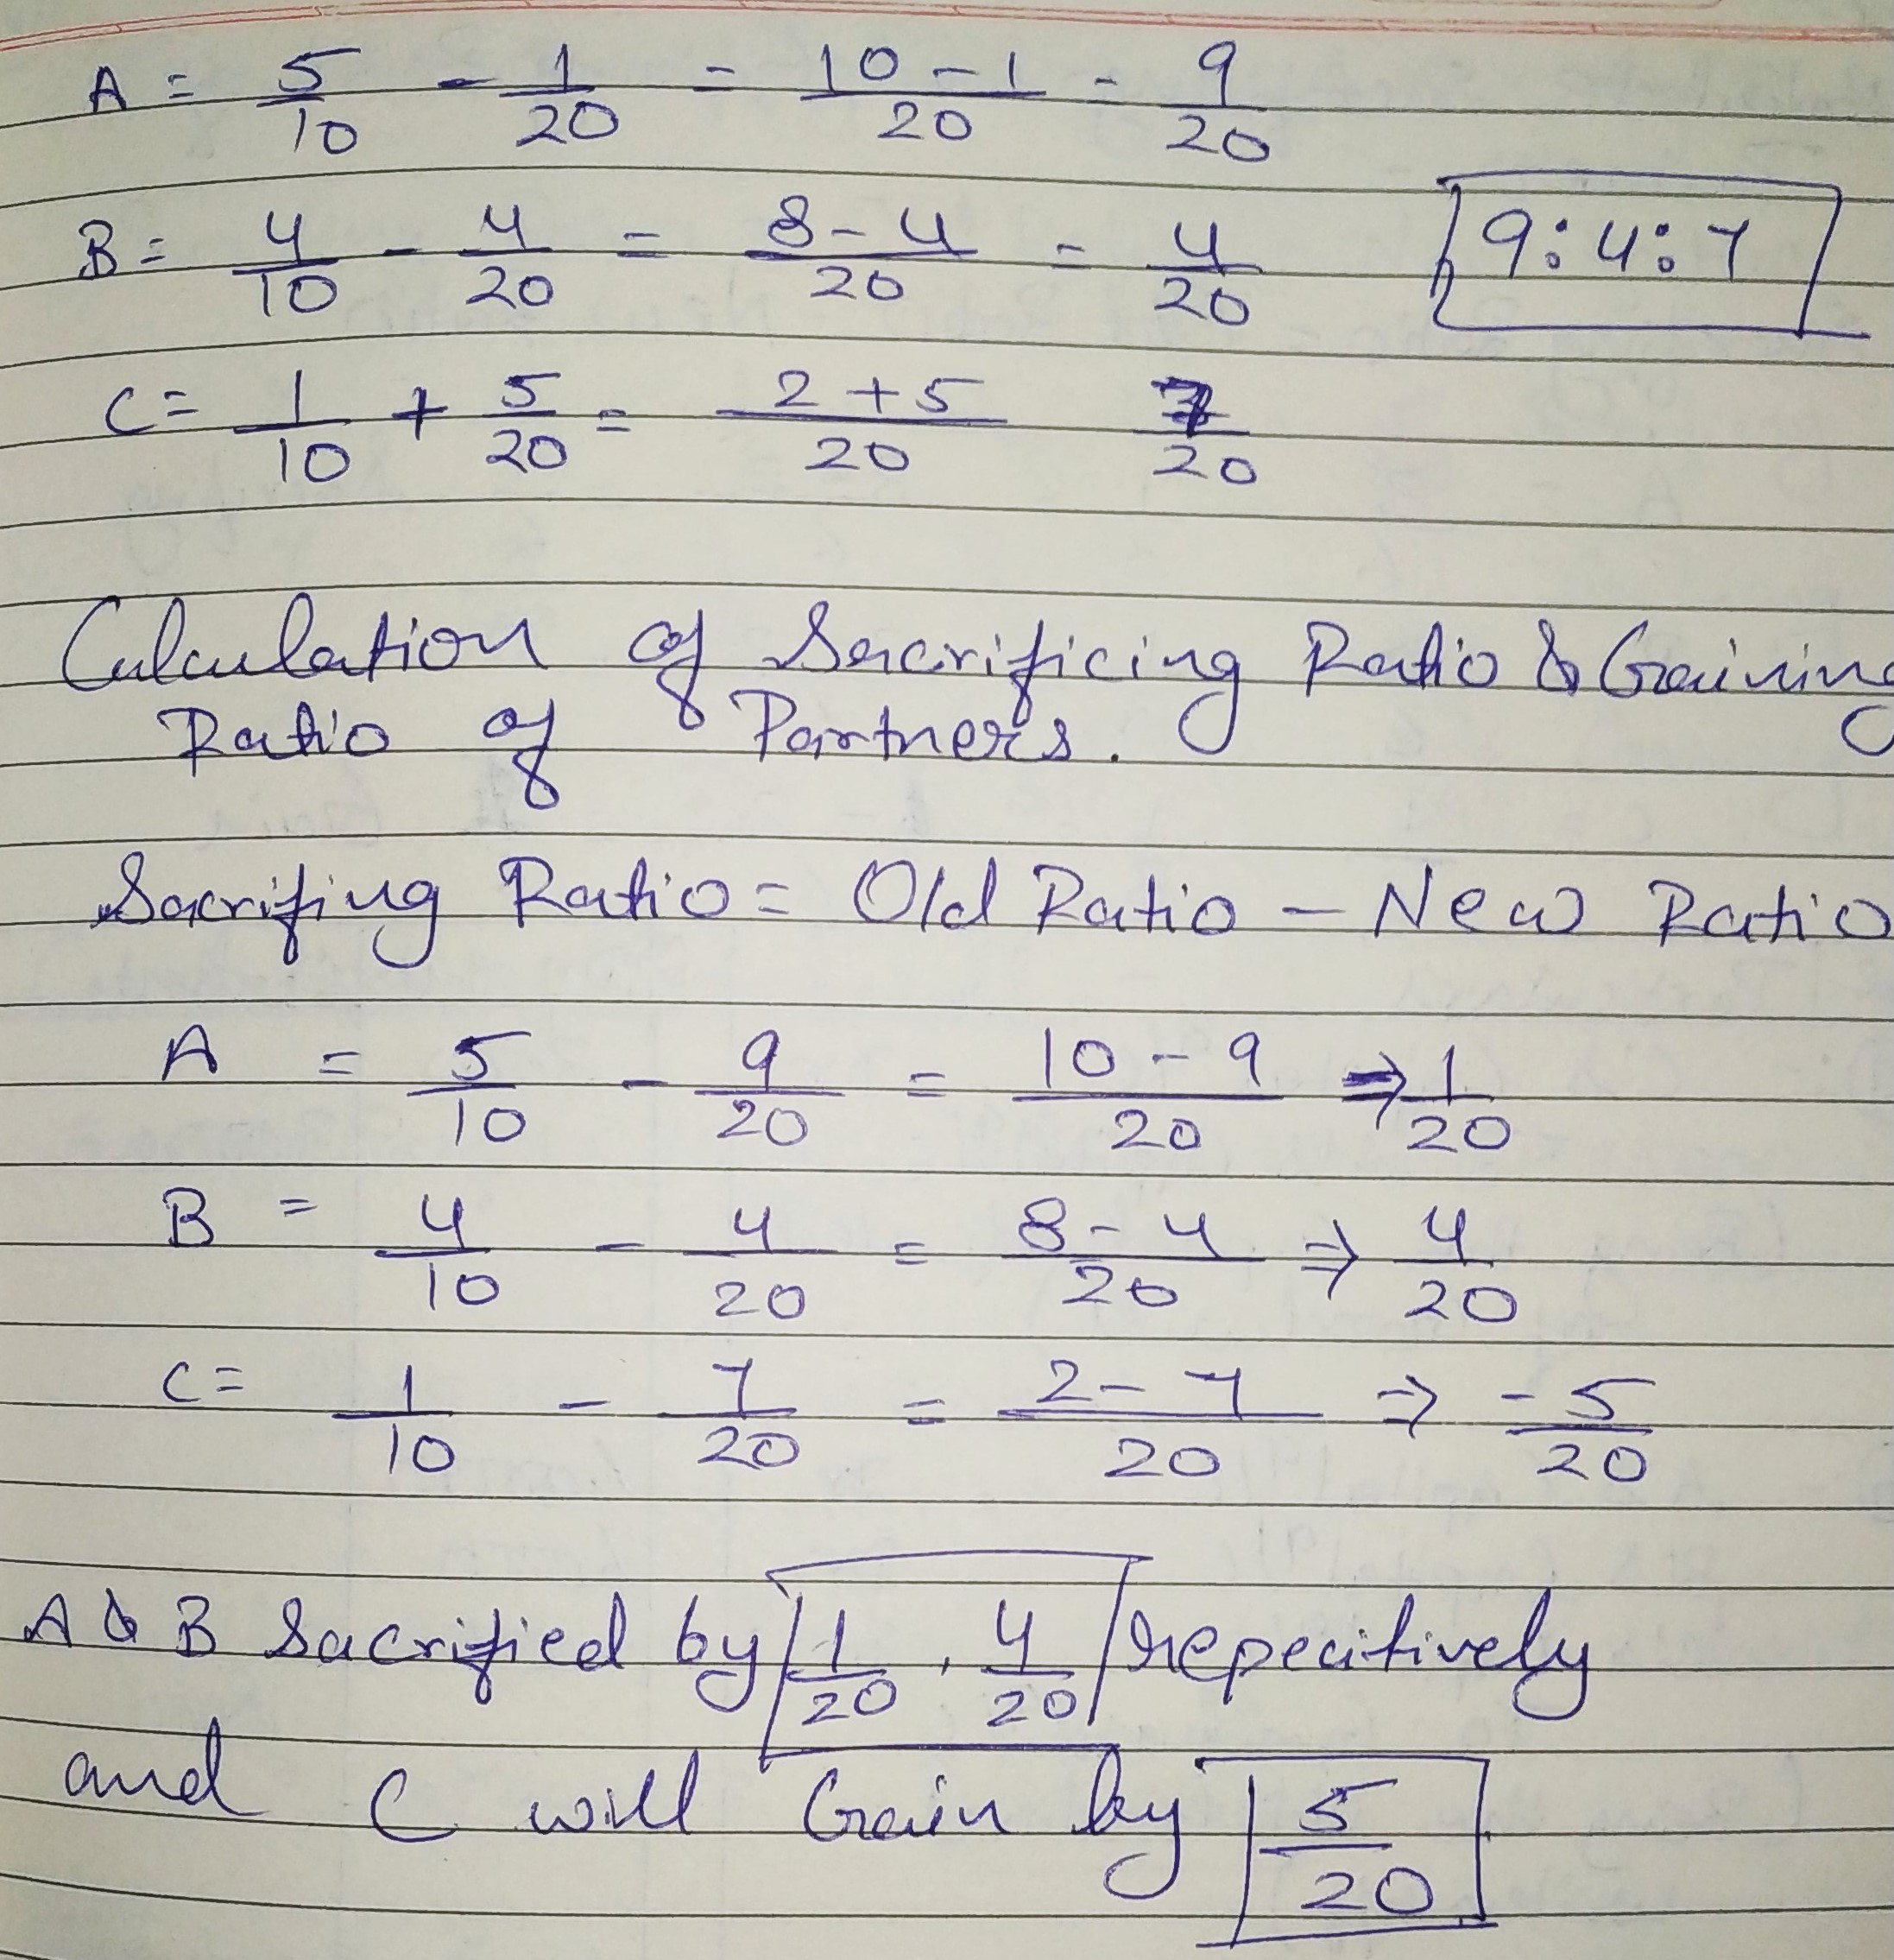 A = 5/10 - 1/20 = 10 - 1/20 = 9/20
B = 4/10 - 4/20 = 8 - 4/20 = 4/20 9:4:7
C = 1/10 + 5/20 = 2 + 5/20 7/20
Calculation of Sacrificing Ratio & Gaining
Ratio of Partners.
Sacrifing Ratio = Old Ratio - New Ratio
A = 5/10 - 9/20 = 10 - 9/20 ⇒ 1/20
B = 4/10 - 4/20 = 8 - 4/20 ⇒ 4/20
C = 1/10 - 7/20 = 2 - 7/20 ⇒ -5/20
A & B Sacrified by 1/20, 4/20 repecitively
and C will Gain by 5/20